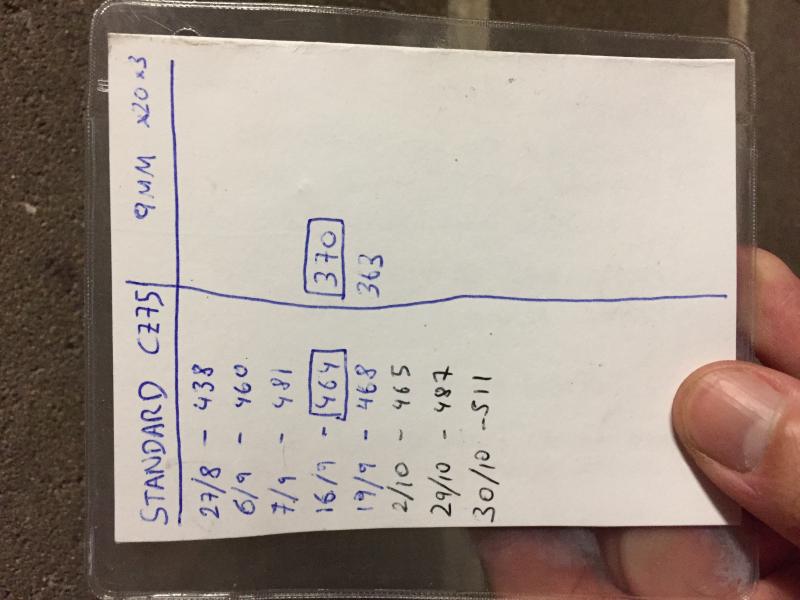 STANDARD CZ75 9MM x20 x3
27/8 - 438
6/9 - 460
7/9 - 481
16/9 - 464 370
19/9 - 468 363
2/10 - 465
29/10 - 487
30/10 - 511